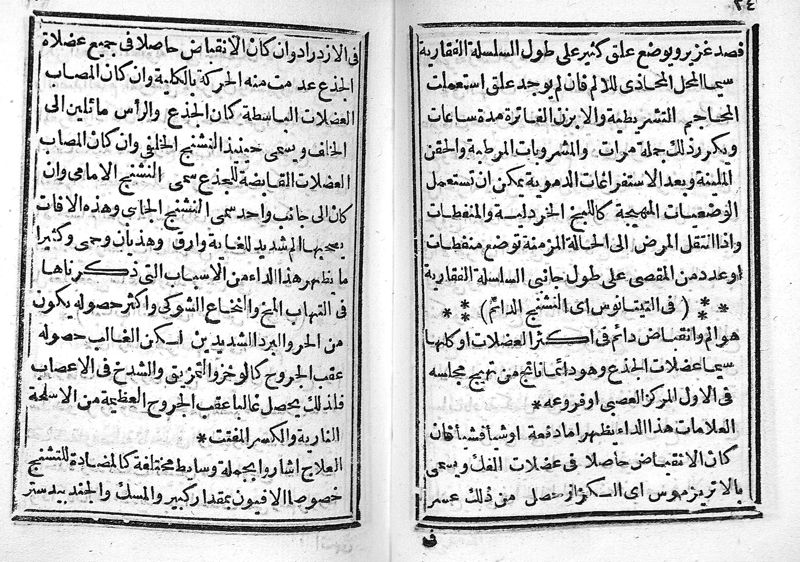 ٣٤
فصد غزير ويوضع علق كثير على طول السلسلة الفقارية
سيما المحل المحاذى للالم فان لم يوجد علق استعملت
المحاجم التشريطية والابزن الفاترة مدة ساعات
ويكرر ذلك جملة مرات والمشروبات المرطبة والحقن
الملينة وبعد الاستفراغات الدموية يمكن ان تستعمل
الوضعيات المهيجة كاللبخ الخردلية والمنفطات
واذا انتقل المرض الى الحالة المزمنة توضع منفطات
او عدد من المقصى على طول جانبى السلسلة الفقارية
* * * (فى التيتانوس اى التشنج الدائم) * * *
هو الم وانقباض دائم فى اكثر العضلات او كلها
سيما عضلات الجذع وهو دائما ناتج من تهيج مجلسه
فى الاول المركز العصبى او فروعه *
العلامات هذا الداء يظهر اما دفعة او شيأ فشيأ فان
كان الانقباض حاصلا فى عضلات الفك ويسمى
بالاتريزموس اى السكزاز حصل من ذلك عسر
ف
فى الازدراد وان كان الانقباض حاصلا فى جميع عضلاة
الجذع عدمت منه الحركة بالكلية وان كان المصاب
العضلات الباسطة كان الجذع والرأس مائلين الى
الخلف ويسمى حينئذ التشنج الخلفى وان كان المصاب
العضلات القابضة للجذع سمى التشنج الامامى وان
كان الى جانب واحد سمى التشنج الجانبى وهذه الافات
يصحبها الم شديد للغاية وارق وهذيان وحمى وكثيرا
ما يظهر هذا الداء من الاسباب التى ذكرناها
فى التهاب المخ والنخاع الشوكى واكثر حصوله يكون
من الحر والبرد الشديدين لسكن الغالب حصوله
عقب الجروح كالوخز والتمزيق والشدخ فى الاعصاب
فلذلك يحصل غالبا عقب الجروح العظيمة من الاسلحة
النارية والكسر المفتت *
العلاج اشاروا بجملة وسايط مختلفة كالمضادة للتشنج
خصوصا الافيون بمقدار كبير والمسك والجندبيدستر